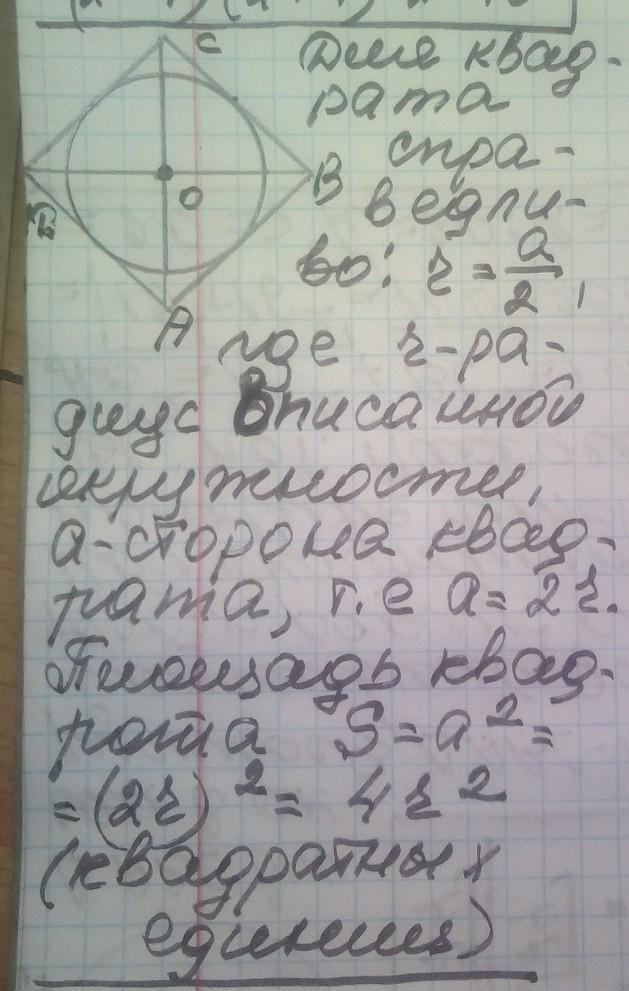 C
Для квад-
рата
спра-
B
O
D
ведли-
во: r = a/2,
A
где r-ра-
диус вписанной
окружности,
a-сторона квад-
рата, т.е a = 2r.
Площадь квад-
рата S = a² =
= (2r)² = 4r²
(квадратных
единиц)